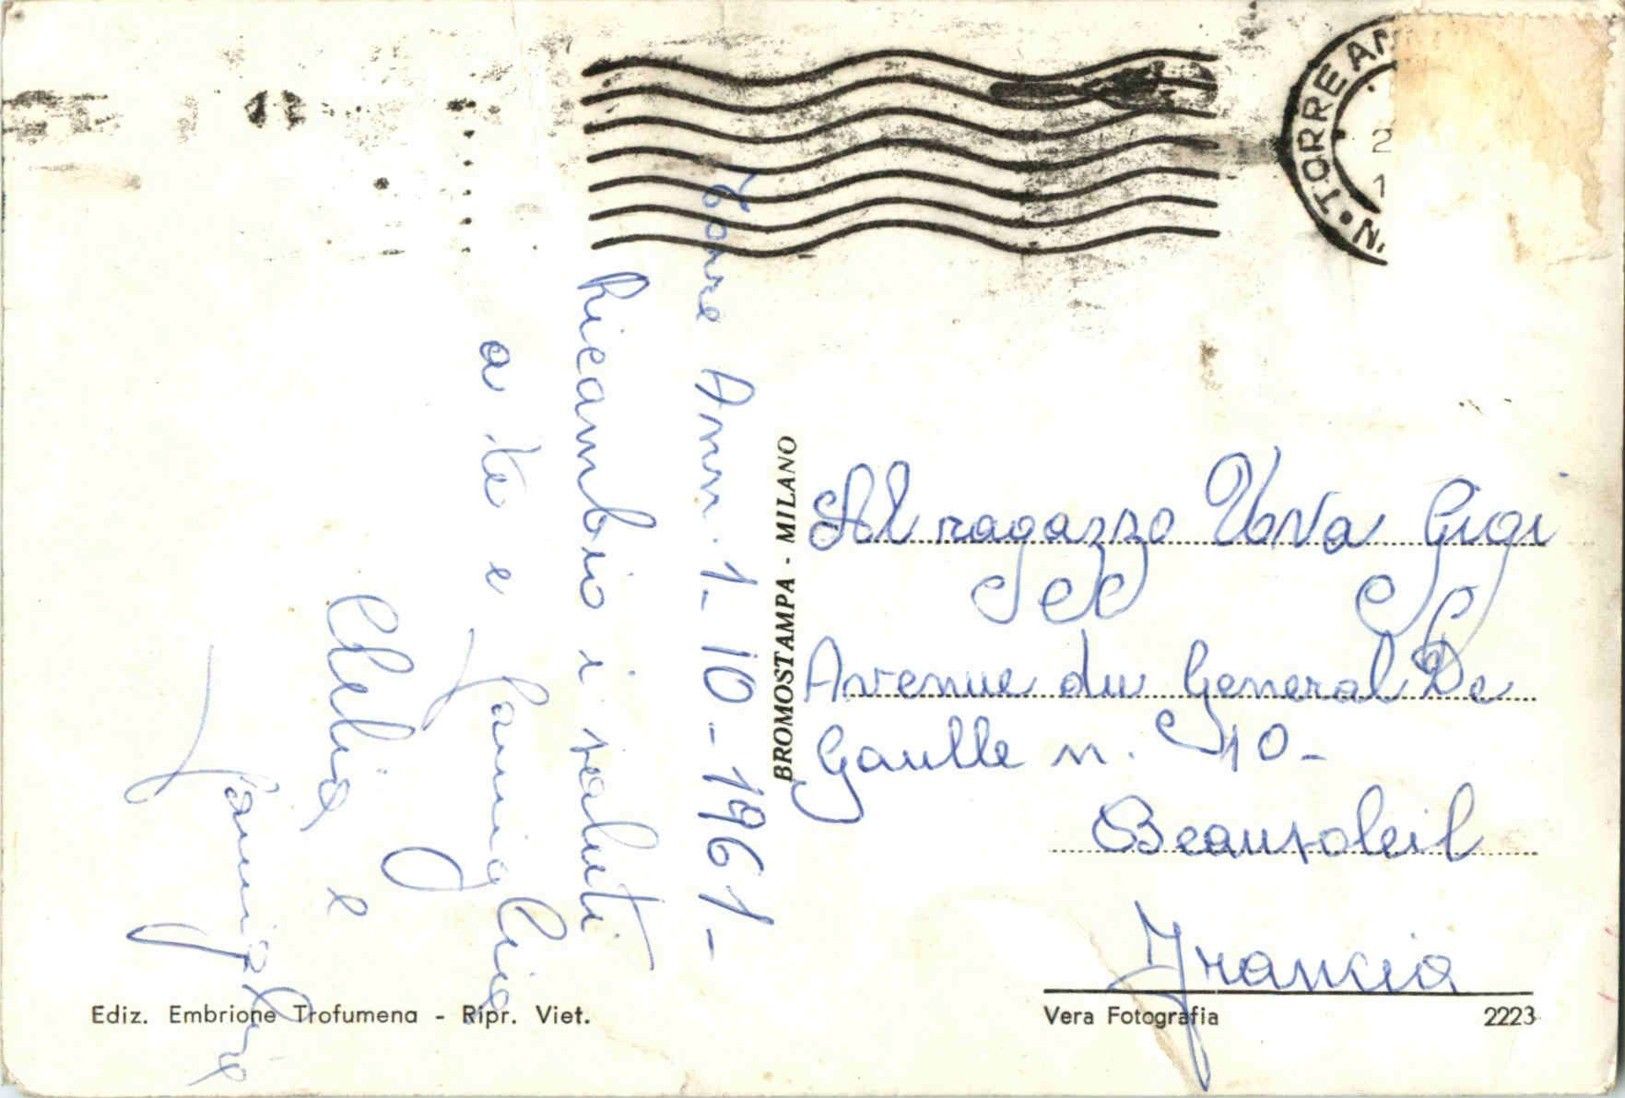 Torre Ann. 1-10-1961-
Ricambio i saluti
a te e famiglia
Clelia e
famiglia
BROMOSTAMPA - MILANO
N • TORRE AN
2
1
Al ragazzo Gigi
Avenue du General De
Gaulle n. 10-
Beausoleil
Francia
Ediz. Embrione Trofumena - Ripr. Viet.
Vera Fotografia
2223